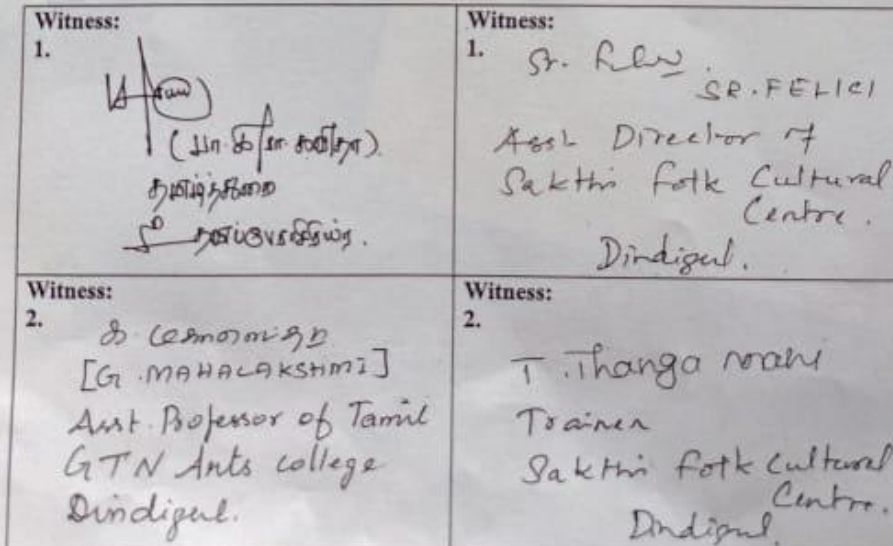 Witness:
1.
தமிழ்த்துறை
Witness:
1.
Sr.
SR. FELICI
Asst Director of
Sakthi Folk Cultural
Centre.
Dindigul.
Witness:
2.
[G. MAHALAKSHMI]
Asst. Professor of Tamil
GTN Arts college
Dindigul.
Witness:
2.
T. Thanga mani
Trainer
Sakthi Folk Cultural
Centre.
Dindigul.